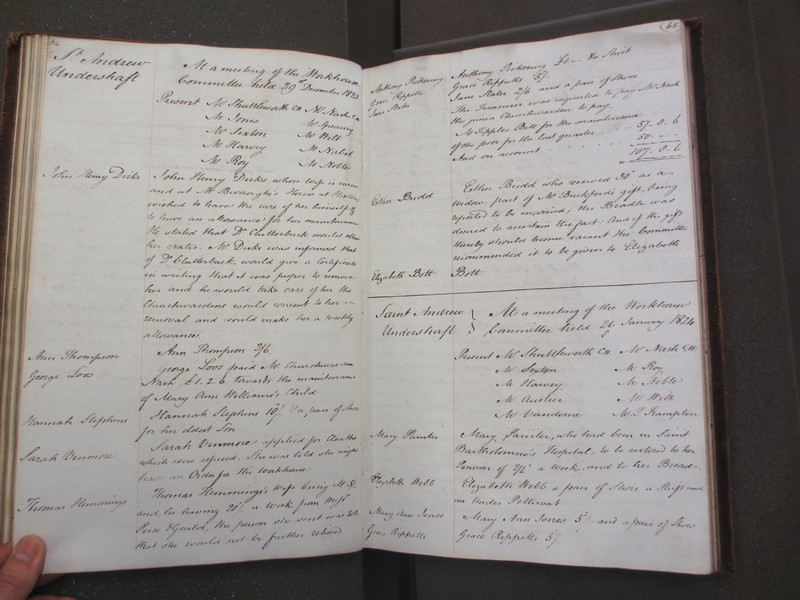 64
St. Andrew
Undershaft
At a meeting of the Workhouse
Committee held 29th December 1823
Present Mr Shuttleworth CW Mr Nash CW
Mr Jones Mr Spearing
Mr Sexton Mr Wilt
Mr Harvey
Mr Roy Mr Noble
John Henry Dicks
John Henry Dicks, whose wife is insane
and at Mr Burrough's House at Hoxton
wished to have the care of her himself &
to have an allowance for her maintenance
He stated that Dr Clutterbuck would attend
her gratis. Mr Dicks was informed that
if Dr Clutterbuck would give a Certificate
in writing that it was proper to remove
her and he would take care of her the
Churchwardens would consent to her
removal and would make her a weekly
allowance
Ann Thompson
Ann Thompson 2/6
George Loos
George Loos paid Mr Churchwarden
Nash £1.2.6 towards the maintenance
of Mary Ann William's Child
Hannah Stephens
Hannah Stephens 10/- & a pair of Shoes
for her eldest Son
Sarah Venmore
Sarah Venmore applied for Cloaths
which were refused. She was told she might
have an Order for the workhouse
Thomas Hemmings
Thomas Hemming's wife being
and, he having 20/- a week from Messrs
the person she sent was told
that she would not be further relieved
65
Anthony Pickering
Anthony Pickering £1 - - & a Shirt
Grace Rippelle
Grace Rippelle 5/-
Jane Slater
Jane Slater 2/6 and a pair of Shoes
The Treasurer was requested to pay Mr Nash
the junior Churchwarden to pay
Mr Tipples Bill for the maintenance
of the poor for the last quarter 57. 0. 6
And on account 50. -. -
107. 0. 6
Esther Budd
Esther Budd who received 30/- as a
Widow, part of Mr Buckford's gift, being
reported to be married, the Beadle was
desired to ascertain the fact. And if the gift
thereby should become vacant the Committee
recommended it to be given to Elizabeth
Elizabeth Bolt
Bolt.
Saint Andrew
Undershaft
At a meeting of the Workhouse
Committee held 26 January 1824
Present Mr Shuttleworth CW Mr Nash CW
Mr Sexton Mr Roy
Mr Harvey Mr Noble
Mr Antler Mr Wilt
Mr Vandome Mr J. Frampton
Mary Painter
Mary Painter, who had been in Saint
Bartholomew's Hospital, to be restored to her
Pension of 2/6 a week and to her Bread.
Elizabeth Webb
Elizabeth Webb a pair of Shoes a Shift and
an Under Petticoat
Mary Ann Jones
Mary Ann Jones 5/- and a pair of Shoes
Grace Rippelle
Grace Rippelle 5/